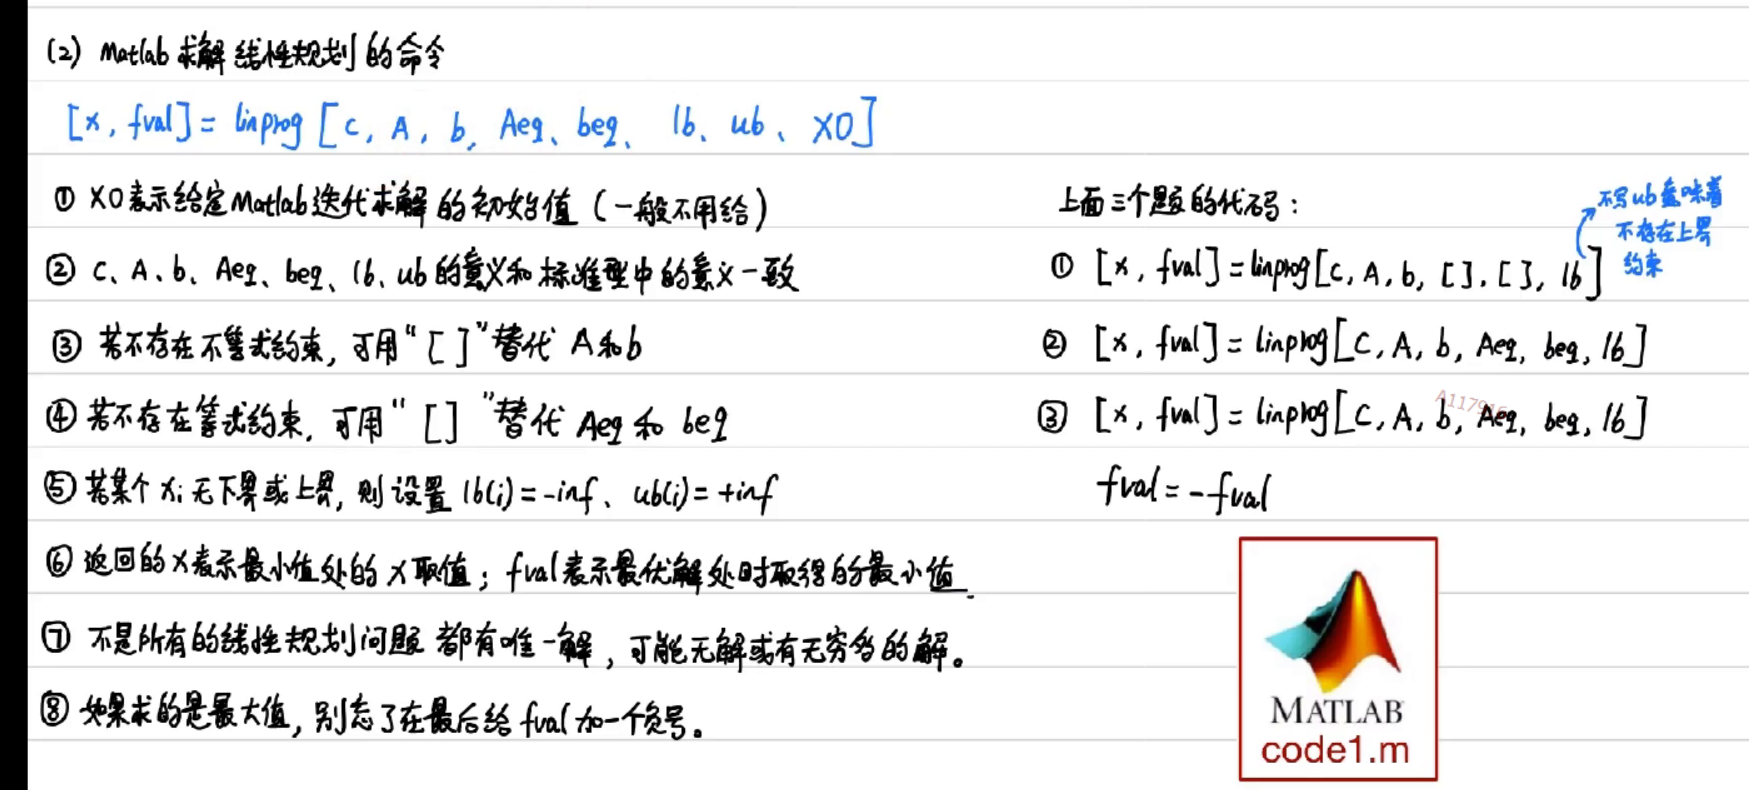 (2) Matlab求解线性规划的命令
[x, fval] = linprog [c, A, b, Aeq、beq、lb、ub、X0]
① X0表示给定Matlab迭代求解的初始值 (一般不用给)
② c、A、b、Aeq、beq、lb、ub的意义和标准型中的意义一致
③ 若不存在不等式约束, 可用“[ ]”替代 A和b
④ 若不存在等式约束, 可用“[]”替代 Aeq和beq
⑤ 若某个xi无下界或上界, 则设置 lb(i)=-inf、ub(i)=+inf
⑥ 返回的x表示最小值处的x取值; fval表示最优解处时取得的最小值.
⑦ 不是所有的线性规划问题都有唯一解, 可能无解或有无穷多的解。
⑧ 如果求的是最大值, 别忘了在最后给fval加一个负号。
上面三个题的代码:
不写ub意味着
不存在上界
约束
① [x, fval] = linprog[c, A, b, [], [], lb]
② [x, fval] = linprog[c, A, b, Aeq, beq, lb]
③ [x, fval] = linprog[c, A, b, Aeq, beq, lb]
fval = -fval
MATLAB
code1.m